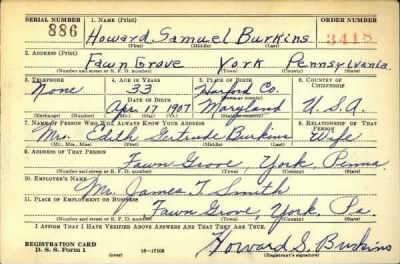 SERIAL NUMBER 1. NAME (Print) ORDER NUMBER
886 Howard Samuel Burkins 3418
(First) (Middle) (Last)
2. ADDRESS (Print)
Fawn Grove York Pennsylvania
(Number and street or R. F. D. number) (Town) (County) (State)
3. TELEPHONE 4. AGE IN YEARS 5. PLACE OF BIRTH 6. COUNTRY OF CITIZENSHIP
None 33 Harford Co.
DATE OF BIRTH
Apr. 17 1907 Maryland U.S.A.
7. NAME OF PERSON WHO WILL ALWAYS KNOW YOUR ADDRESS 8. RELATIONSHIP OF THAT PERSON
Mrs. Edith Gertrude Burkins Wife
(Mr., Mrs., Miss) (First) (Middle) (Last)
9. ADDRESS OF THAT PERSON
Fawn Grove, York, Penna.
(Number and street or R. F. D. number) (Town) (County) (State)
10. EMPLOYER'S NAME
Mr. James T. Smith
11. PLACE OF EMPLOYMENT OR BUSINESS
Fawn Grove, York, Pa.
(Number and street or R. F. D. number) (Town) (County) (State)
I AFFIRM THAT I HAVE VERIFIED ABOVE ANSWERS AND THAT THEY ARE TRUE.
REGISTRATION CARD
D. S. S. Form 1 (over) Howard S. Burkins
(Registrant's signature)